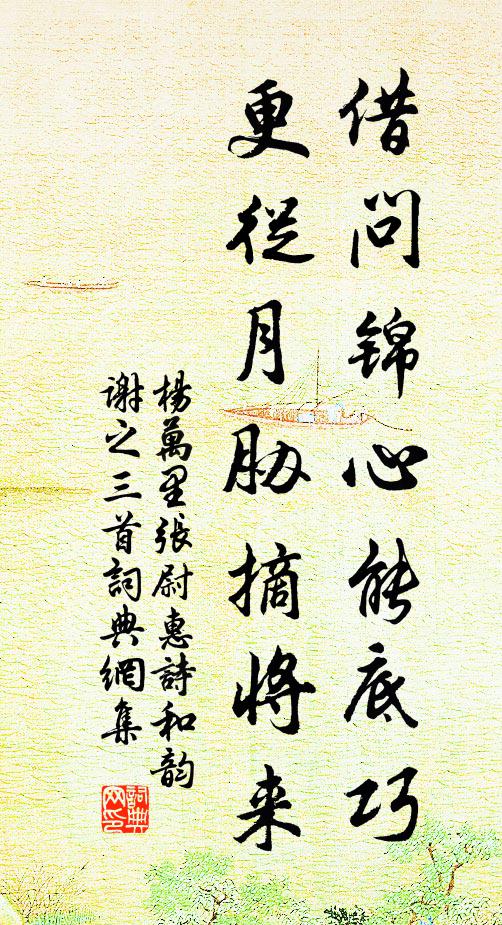 借问锦心能底巧
更從月胁摘將来
楊萬里張尉惠詩和韵
謝之三首詞典網集
詞典
网印